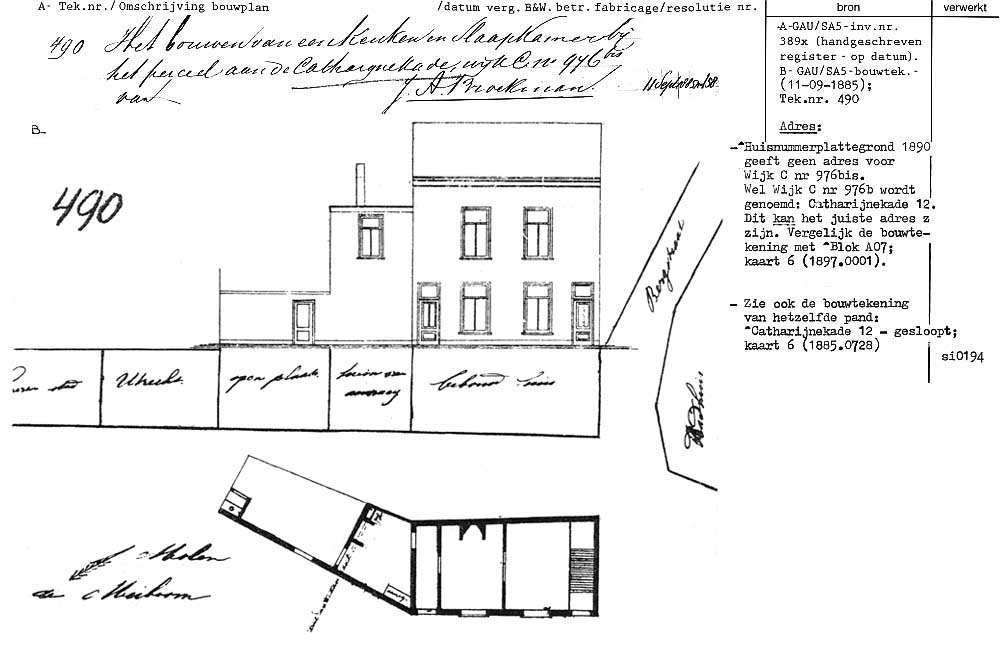 A- Tek.nr./Omschrijving bouwplan /datum verg. B&W. betr. fabricage/resolutie nr. bron verwerkt
490 Het bouwen van een Keuken en Slaapkamer bij
het perceel aan de Catharijnekade, wijk C nº 976 bis
van J. A. Broekman.
-A-GAU/SA5-inv.nr.
389x (handgeschreven
register - op datum).
B- GAU/SA5-bouwtek.-
(11-09-1885);
Tek.nr. 490
Adres:
B-
490
-^Huisnummerplattegrond 1890
geeft geen adres voor
Wijk C nr 976bis.
Wel Wijk C nr 976b wordt
genoemd: Catharijnekade 12.
Dit kan het juiste adres z
zijn. Vergelijk de bouwte-
kening met ^Blok A07;
kaart 6 (1897.0001).
- Zie ook de bouwtekening
van hetzelfde pand:
^Catharijnekade 12 - gesloopt;
kaart 6 (1885.0728)
si0194
Bergstraat
Utrecht
open plaats
bebouwd huis
Badhuis
Molen
de Meiboom